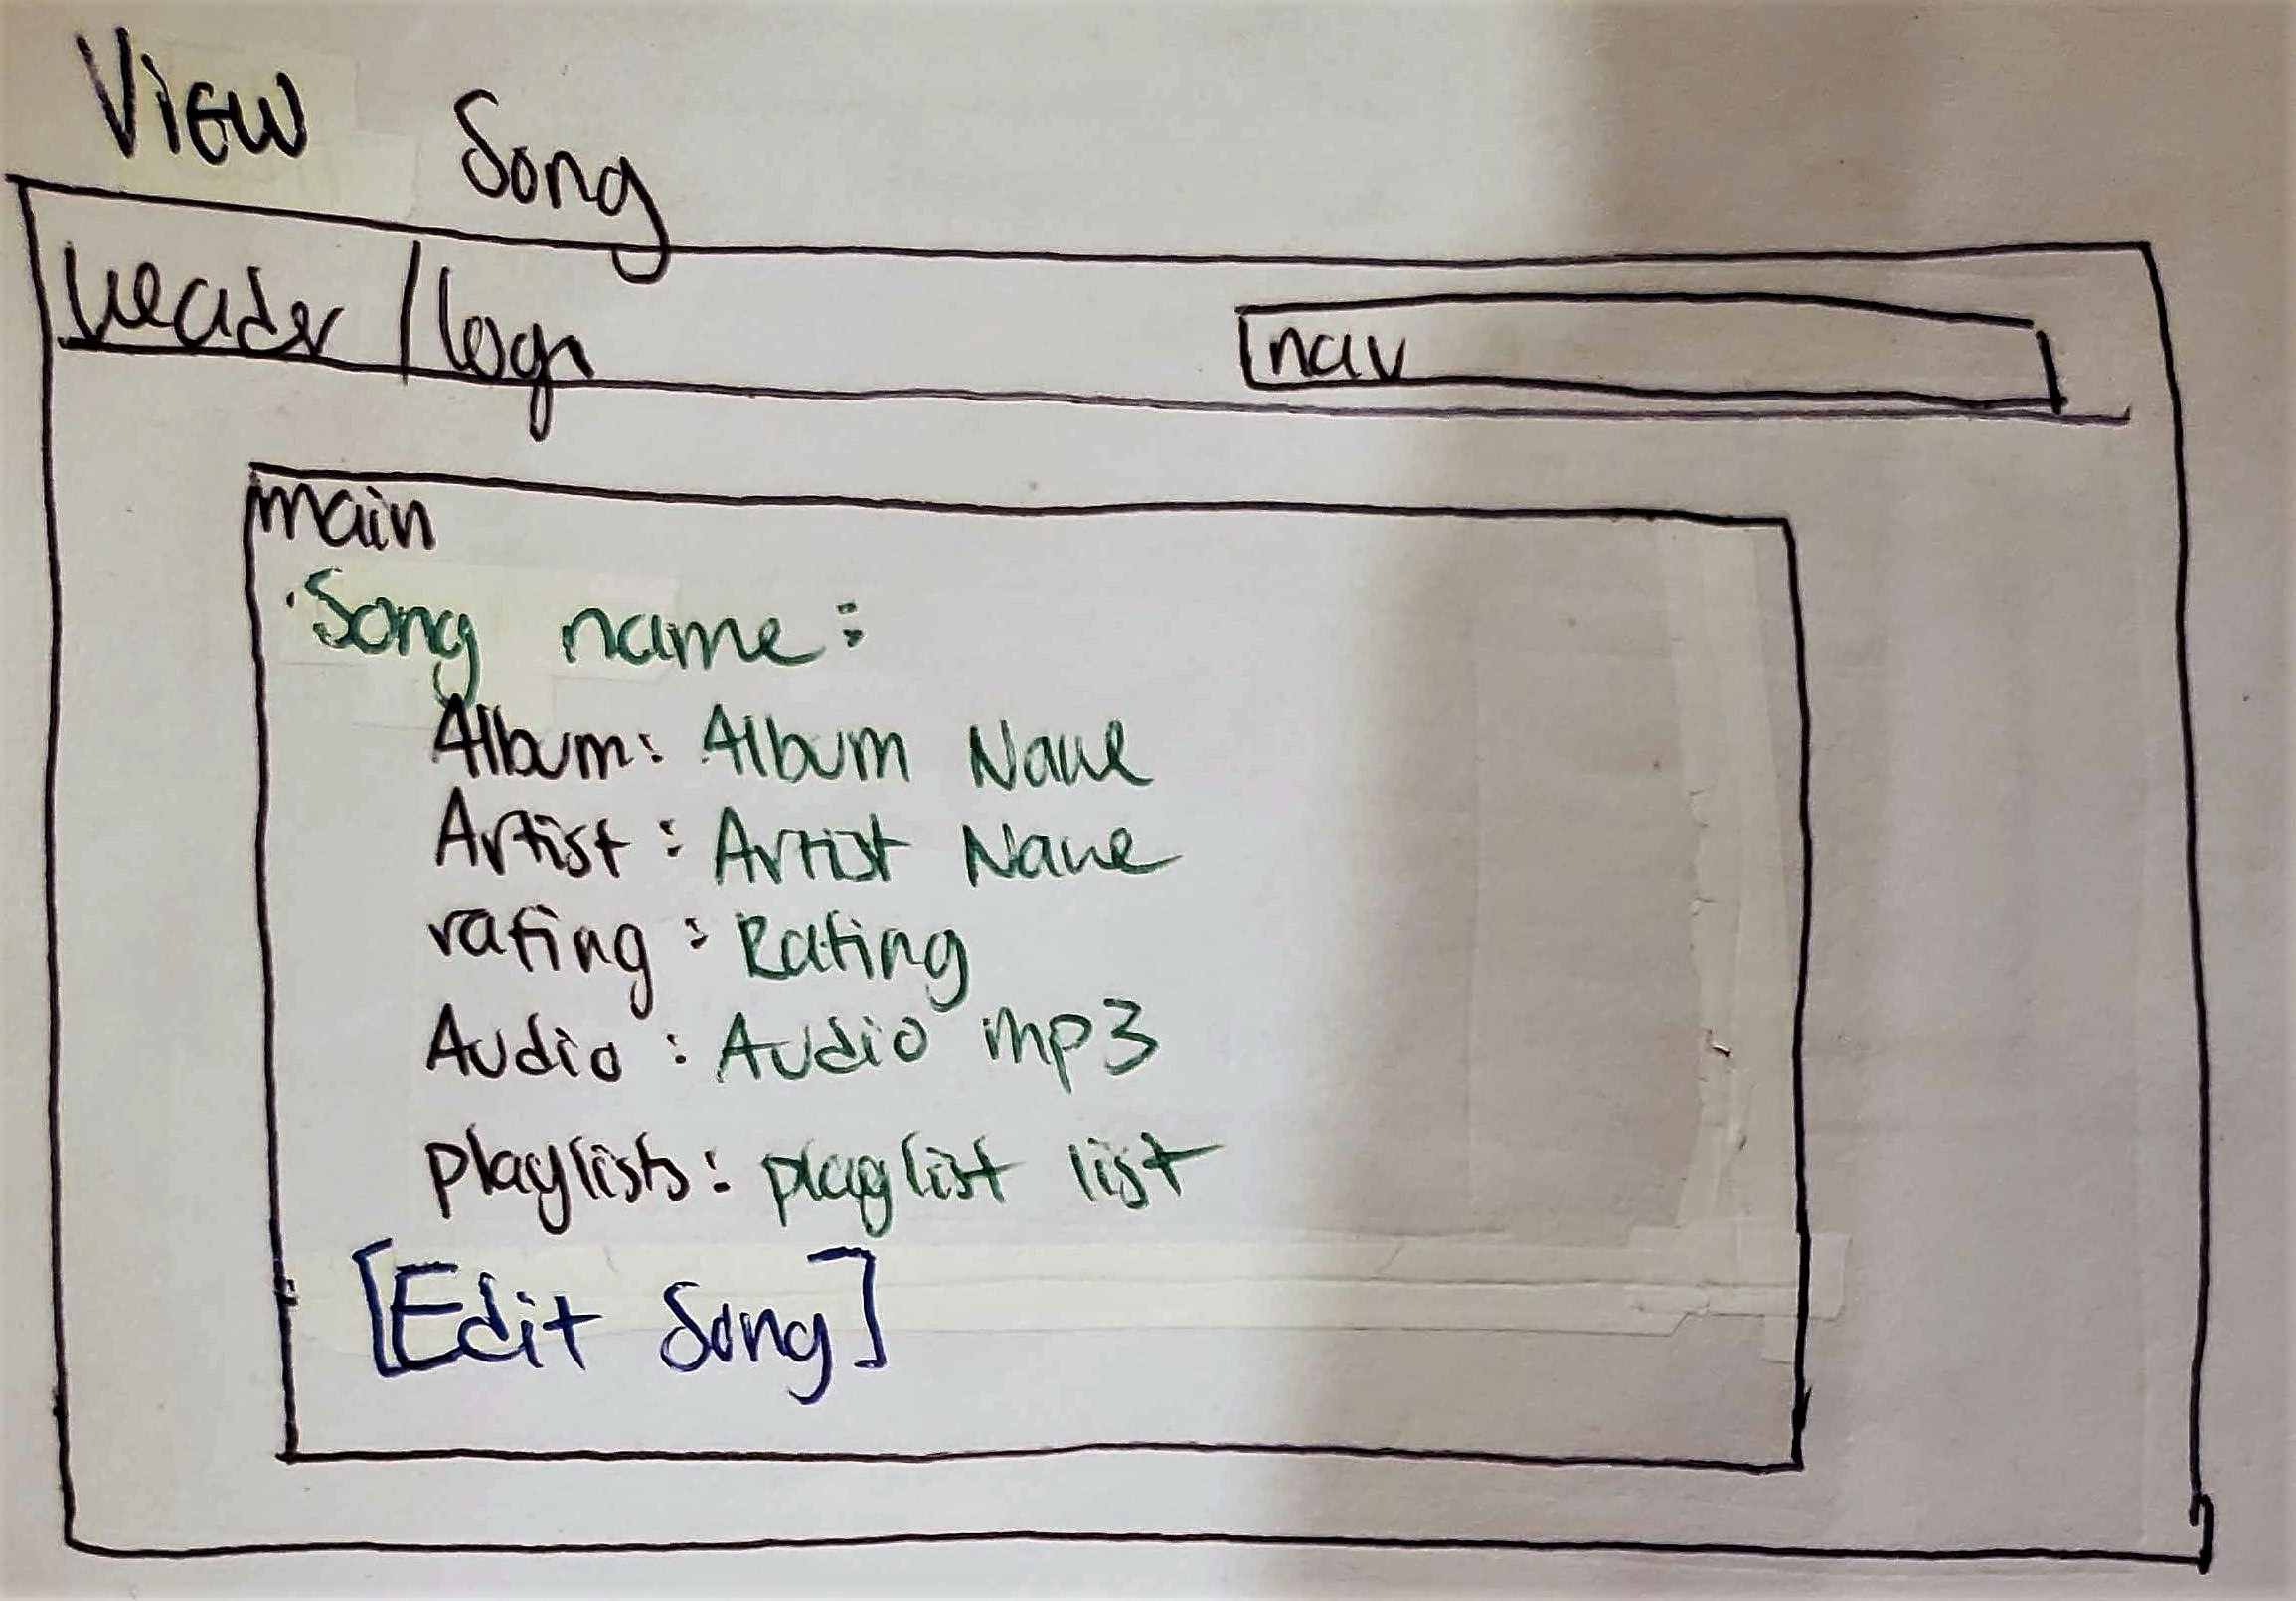 View Song
header / logo
nav
main
Song name:
Album: Album Name
Artist: Artist Name
rating: Rating
Audio: Audio mp3
playlists: playlist list
[Edit Song]